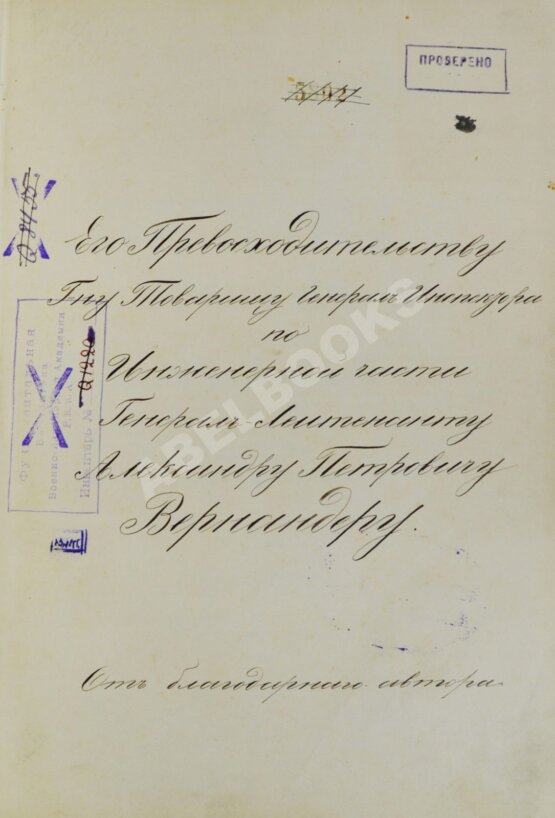 ПРОВЕРЕНО
Q 84 55.
Его Превосходительству
Гну Товарищу Генералъ Инспектора
по
Инженерной части
Генералъ-Лейтенанту
Александру Петровичу
Вернандеру.
Отъ благодарнаго автора
Фундаментальная
Военно-
Академии
Инвентарь №
Q1290
ABELBOOKS